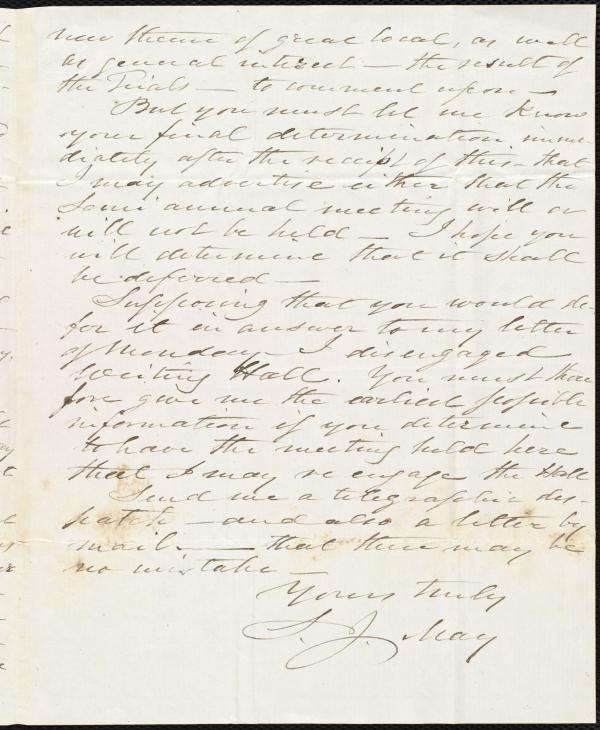 new theme of great local, as well
as general interest — the result of
the Trials — to comment upon —
But you must let me know
your final determination imme-
diately after the receipt of this - that
I may advertise either that the
Semi annual meeting will or
will not be held — I hope you
will determine that it shall
be deferred —
Supposing that you would de-
fer it in answer to my letter
of Monday — I disengaged
Weiting Hall. You must there
fore give me the earliest possible
information if you determine
to have the meeting held here
that I may re engage the Hall
Send me a telegraphic des-
patch — and also a letter by
mail — that there may be
no mistake —
Yours truly
S. J. May